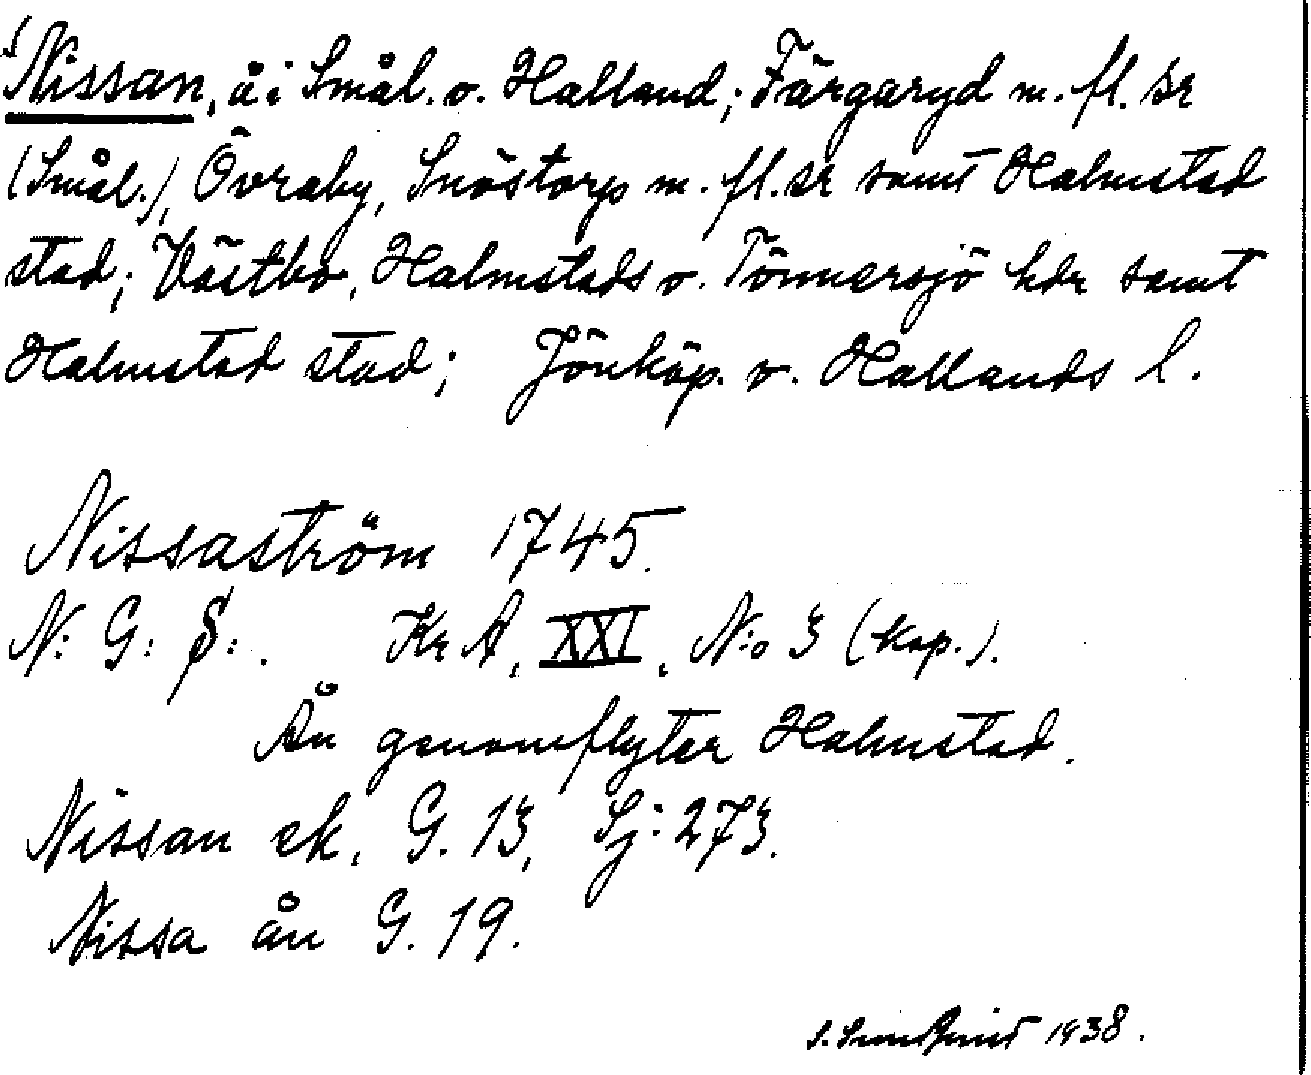 Nissan, å i Smål. o. Halland; Färgaryd m. fl. sr
(Smål.), Övraby, Snöstorp m. fl. sr samt Halmstad
stad; Västbo, Halmstads o. Tönnersjö hdr samt
Halmstad stad; Jönköp. o. Hallands l.
Nissaström 1745.
N: G: S: . Kr A, XXI, N:o 3 (kop.).
Ån genomflyter Halmstad.
Nissan ek. G. 13, Sj: 273.
Nissa ån G. 19.
1938.